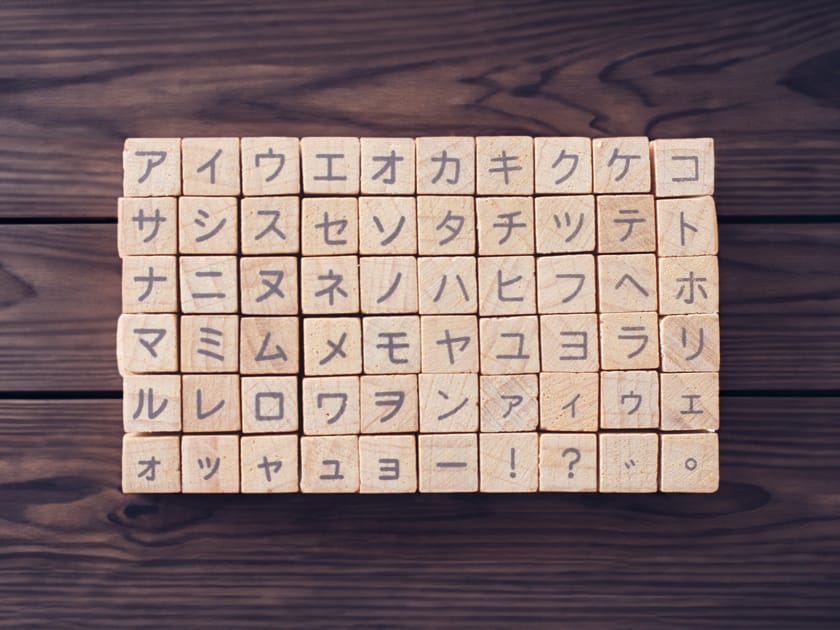 アイウエオカキクケコ
サシスセソタチツテト
ナニヌネノハヒフヘホ
マミムメモヤユヨラリ
ルレロワヲンァィゥェ
ォッャュョー!?゛゜